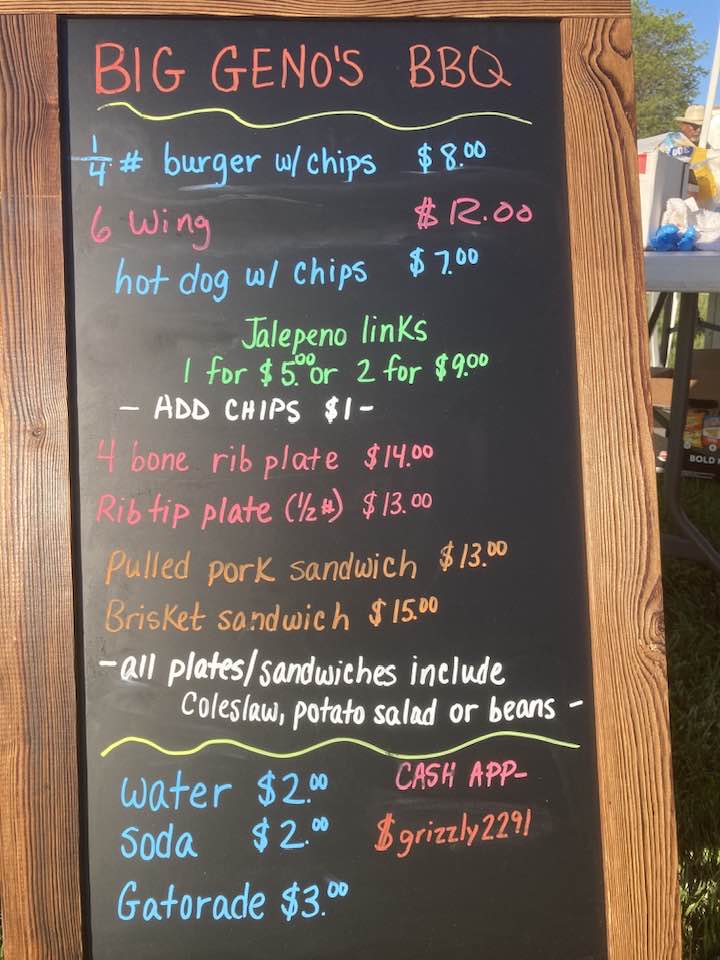 BIG GENO'S BBQ
1/4 # burger w/ chips $8.00
6 Wing $12.00
hot dog w/ chips $7.00
Jalepeno links
1 for $5.00 or 2 for $9.00
- ADD CHIPS $1 -
4 bone rib plate $14.00
Rib tip plate (1/2 #) $13.00
Pulled pork sandwich $13.00
Brisket sandwich $15.00
- all plates/sandwiches include
Coleslaw, potato salad or beans -
water $2.00
CASH APP-
soda $2.00
$grizzly2291
Gatorade $3.00
BOLD